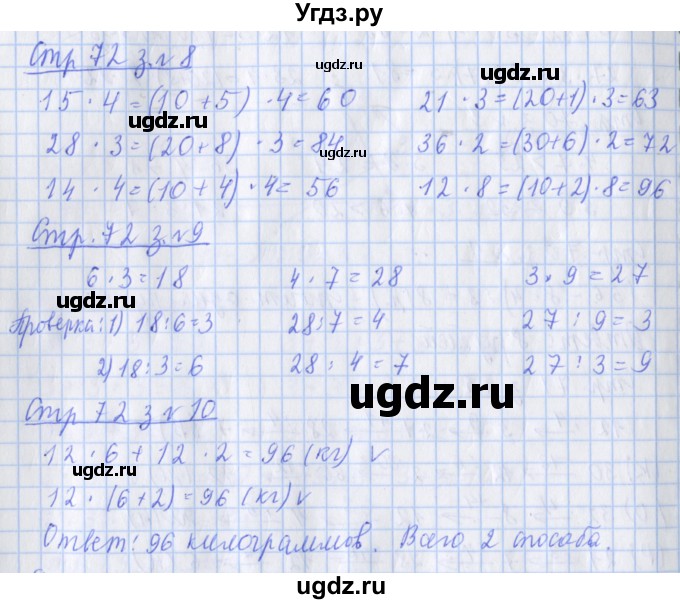 Угдз.ру
Стр 72 з. №8
15 · 4 = (10 + 5) · 4 = 60 21 · 3 = (20+1) · 3 = 63
28 · 3 = (20+8) · 3 = 84 36 · 2 = (30+6) · 2 = 72
14 · 4 = (10 + 4) · 4 = 56 12 · 8 = (10+2) · 8 = 96
Стр. 72 з. №9
6 · 3 = 18 4 · 7 = 28 3 · 9 = 27
Проверка: 1) 18 : 6 = 3 28 : 7 = 4 27 : 9 = 3
2) 18 : 3 = 6 28 : 4 = 7 27 : 3 = 9
Стр 72 з №10
12 · 6 + 12 · 2 = 96 (кг) v
12 · (6+2) = 96 (кг) v
Ответ: 96 килограммов. Всего 2 способа.
ugdz.ru
ugdz.ru
ugdz.ru
ugdz.ru
ugdz.ru
ugdz.ru
ugdz.ru
ugdz.ru
ugdz.ru
ugdz.ru
ugdz.ru
ugdz.ru